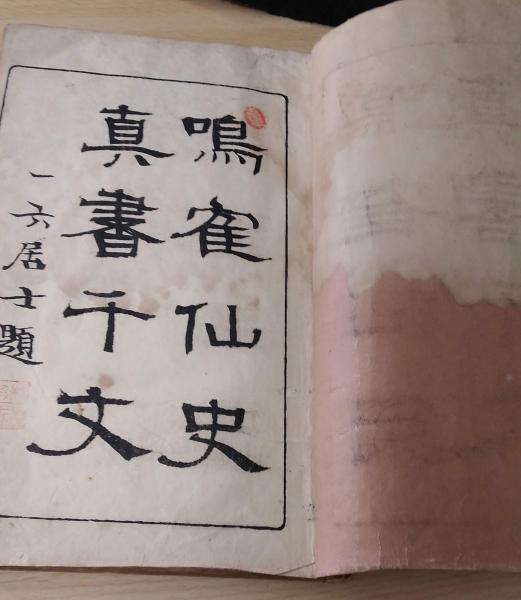 鳴寉仙史
真書千文
一六居士題